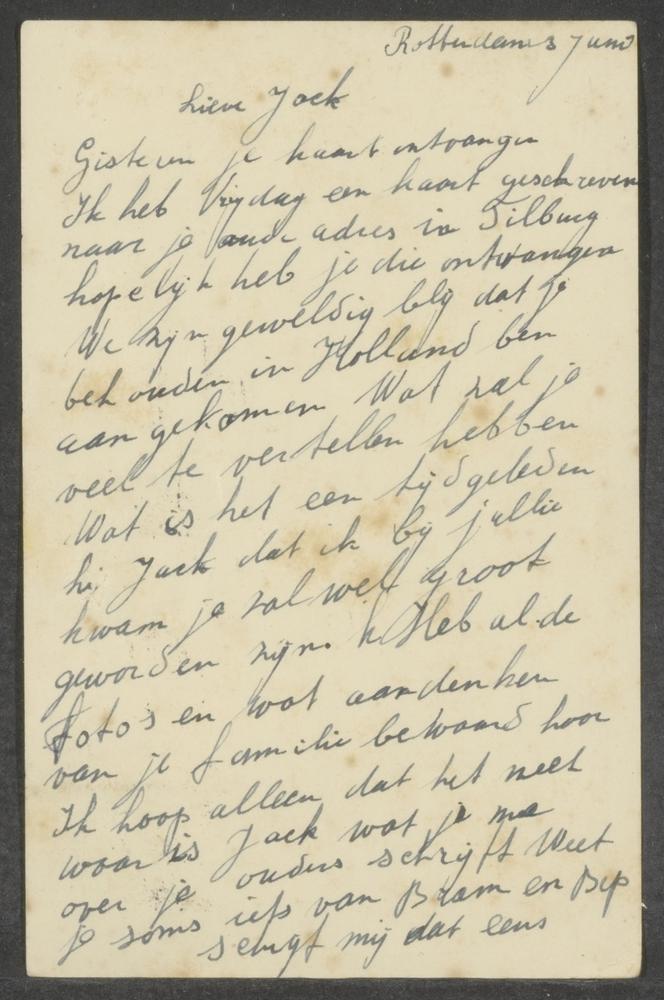 Rotterdam 3 Juni
Lieve Jack
Gisteren je kaart ontvangen
Ik heb Vrijdag een kaart geschreven
naar je oude adres in Tilburg
hopelijk heb je die ontvangen
We zijn geweldig blij dat je
behouden in Holland ben
aangekomen Wat zal je
veel te vertellen hebben
Wat is het een tijd geleden
hé Jack dat ik bij jullie
kwam je zal wel groot
geworden zijn. Heb al de
foto's en wat aandenken
van je familie bewaard hoor
Ik hoop alleen dat het niet
waar is Jack wat je me
over je ouders schrijft Weet
je soms iets van Bram en Bep
schrijf mij dat eens